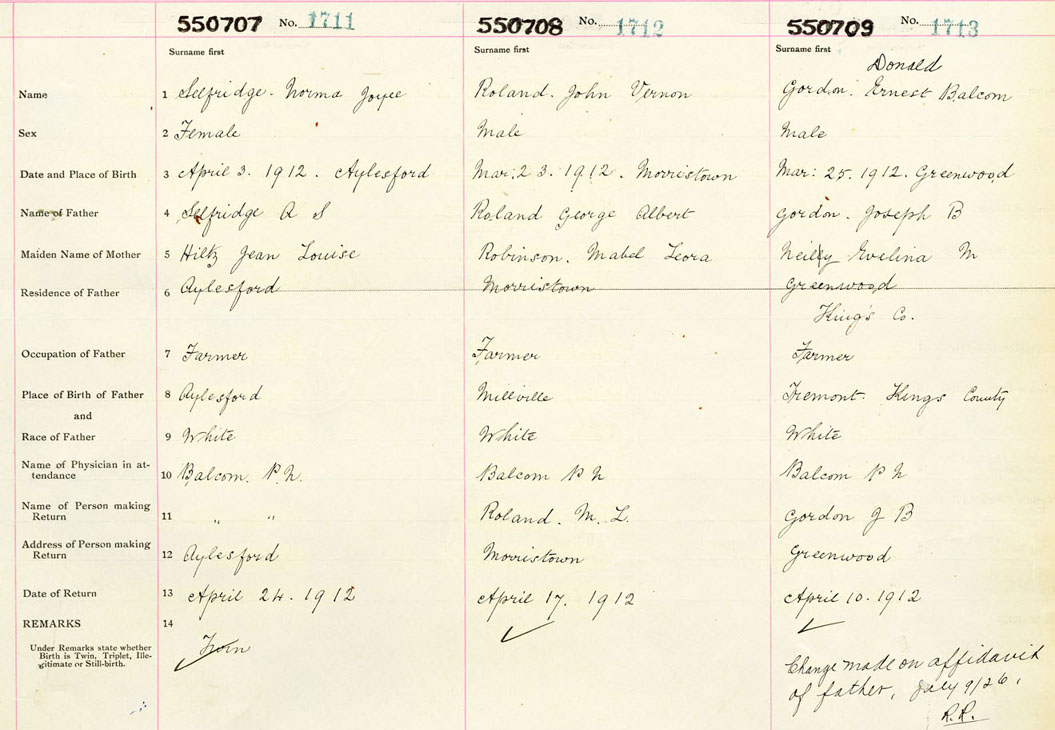 550707 No. 1711 550708 No. 1712 550709 No. 1713
Surname first Surname first Surname first
Donald
Name 1 Selfridge. Norma Joyce Roland. John Vernon Gordon. Ernest Balcom
Sex 2 Female Male Male
Date and Place of Birth 3 April 3. 1912. Aylesford Mar: 23. 1912. Morristown Mar: 25. 1912. Greenwood
Name of Father 4 Selfridge A S Roland George Albert Gordon. Joseph B
Maiden Name of Mother 5 Hiltz Jean Louise Robinson. Mabel Leora Neily Evelina M
Residence of Father 6 Aylesford Morristown Greenwood
King's Co.
Occupation of Father 7 Farmer Farmer Farmer
Place of Birth of Father 8 Aylesford Millville Tremont. Kings County
and
Race of Father 9 White White White
Name of Physician in at-
tendance 10 Balcom. P. N. Balcom P N Balcom P N
Name of Person making
Return 11 " " Roland. M. L. Gordon J B
Address of Person making
Return 12 Aylesford Morristown Greenwood
Date of Return 13 April 24. 1912 April 17. 1912 April 10. 1912
REMARKS 14
Under Remarks state whether
Birth is Twin, Triplet, Ille-
gitimate or Still-birth.
Twin
Change made on affidavit
of father, July 9/26,
R.R.